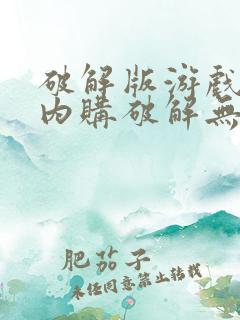 破解版游戲
內購破解無
肥茄子
未经同意禁止转载